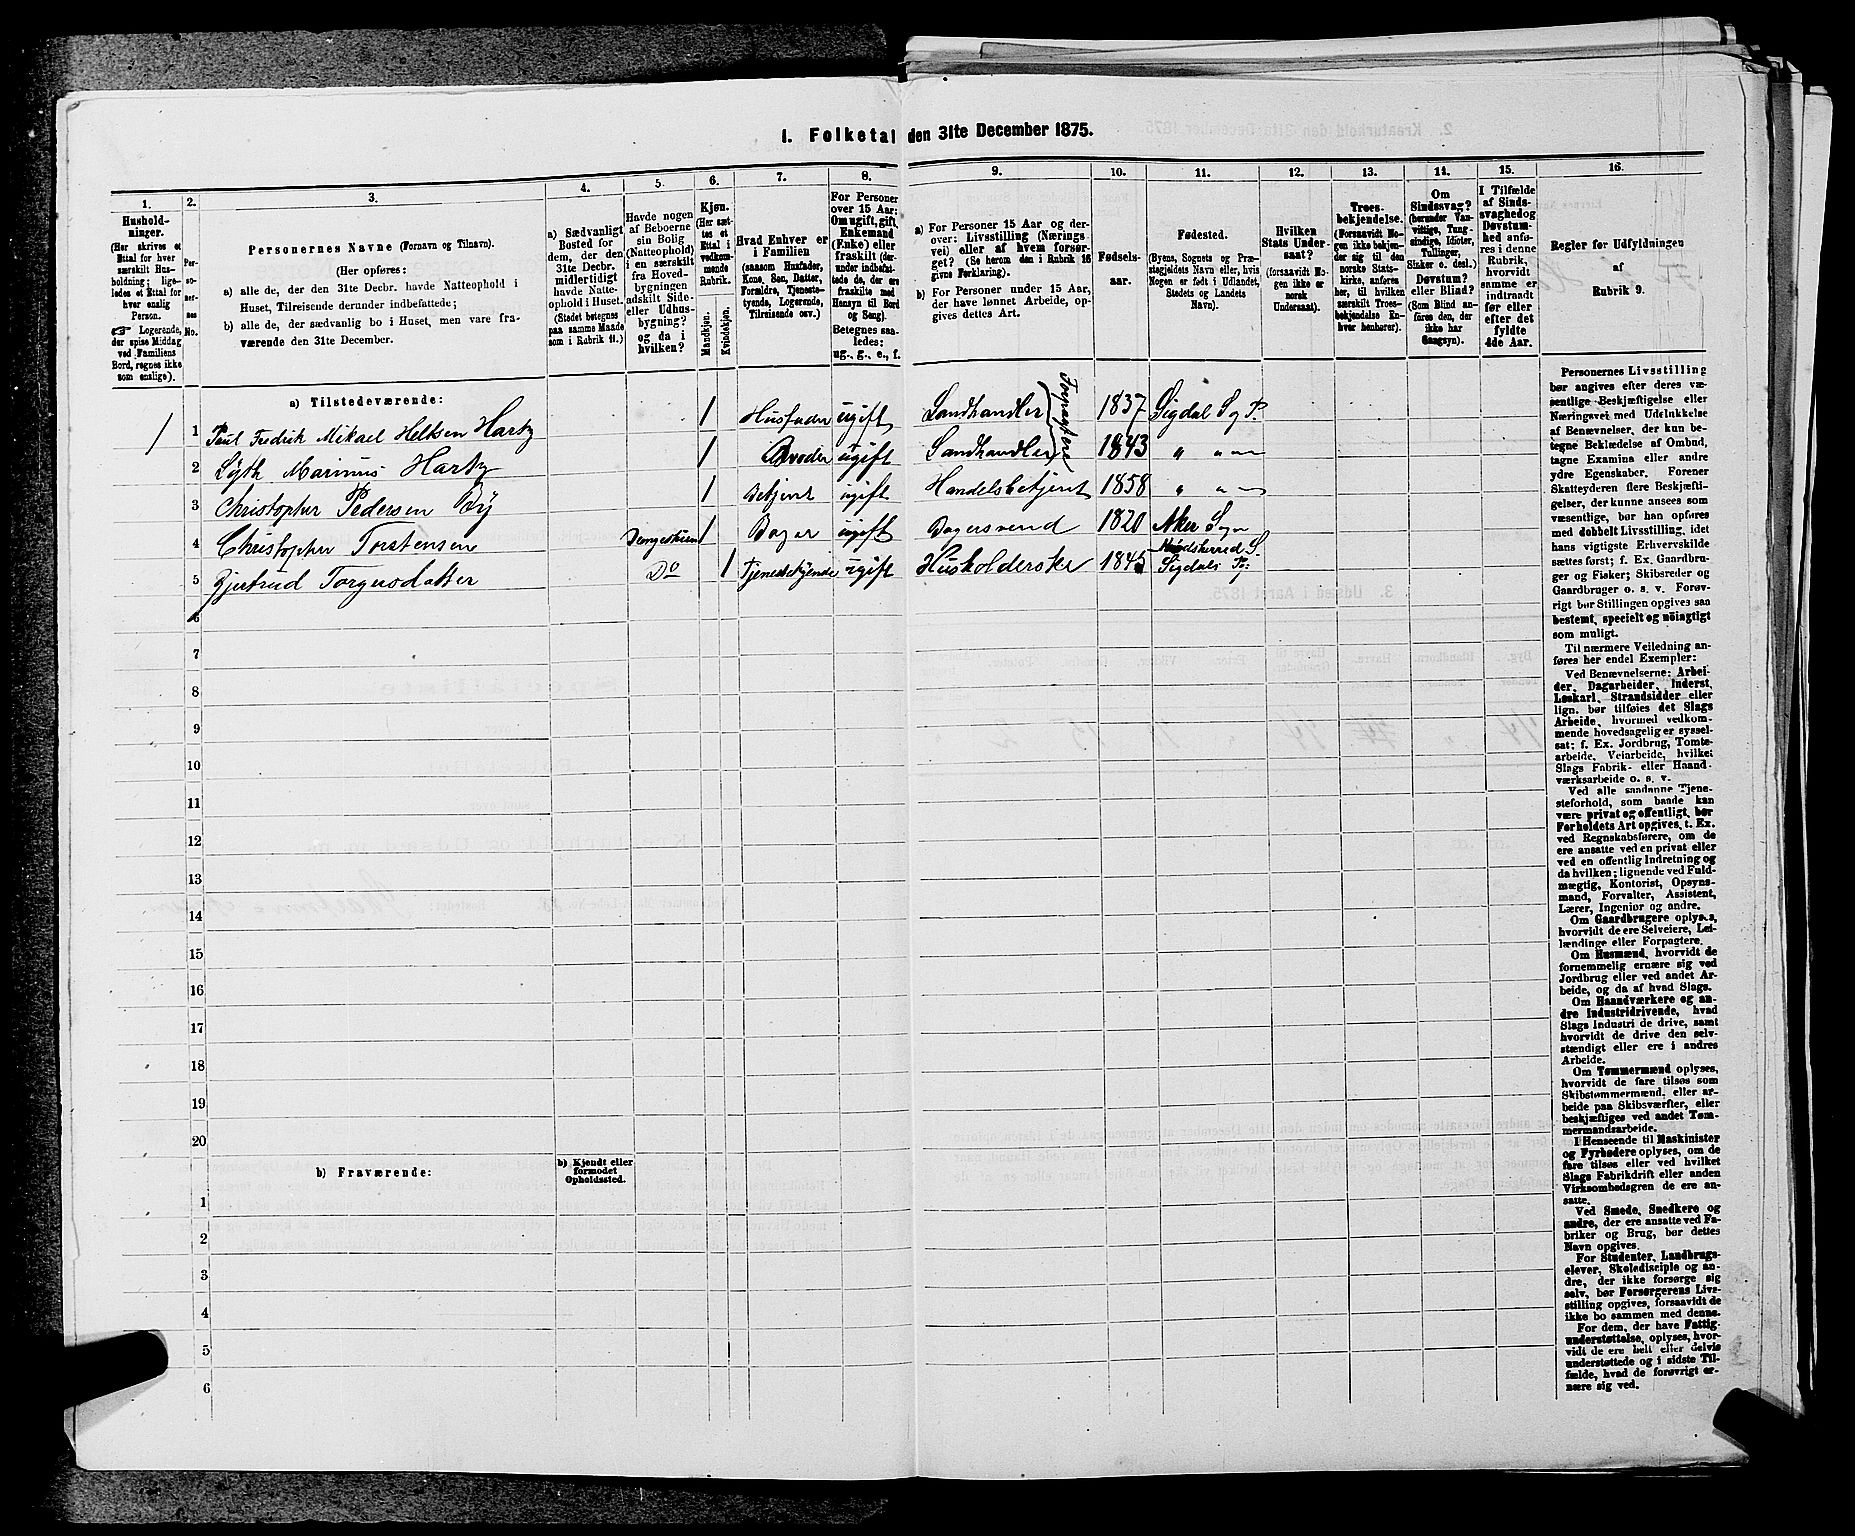 1. Folketal den 31te December 1875.
1. 2. 3. 4. 5. 6. 7. 8. 9. 10. 11. 12. 13. 14. 15. 16.
Hushold-
ninger.
(Her skrives et
Ettal for hver
særskilt Hus-
holdning; lige-
ledes et Ettal for
hver enslig
Person.
☞ Logerende,
der spise Middag
ved Familiens
Bord, regnes ikke
som enslige).
Per-
so-
ner-
nes
No.
Personernes Navne (Fornavn og Tilnavn).
(Her opføres:
a) alle de, der den 31te Decbr. havde Natteophold i
Huset, Tilreisende derunder indbefattede;
b) alle de, der sædvanlig bo i Huset, men vare fra-
værende den 31te December.
a) Sædvanligt
Bosted for
dem, der den
31te Decbr.
midlertidigt
havde Natte-
ophold i Huset.
(Stedet betegnes
paa samme Maade
som i Rubrik 11.)
Havde nogen
af Beboerne
sin Bolig
(Natteophold)
i en særskilt
fra Hoved-
bygningen
adskilt Side-
eller Udhus-
bygning?
og da i
hvilken?
Kjøn.
(Her sæt-
tes et
Ettal i
vedkom-
mende
Rubrik.
Mandkjøn.
Kvindekjøn.
Hvad Enhver er
i Familien
(saasom Husfader,
Kone, Søn, Datter,
Forældre, Tjeneste-
tyende, Logerende,
Tilreisende osv.)
For Personer
over 15 Aar:
Om ugift, gift,
Enkemand
(Enke) eller
fraskilt (der-
under indbefat-
tede de, der ere
fraskilte med
Hensyn til Bord
og Seng).
Betegnes saa-
ledes:
ug., g., e., f.
a) For Personer 15 Aar og der-
over: Livsstilling (Nærings-
vei) eller af hvem forsør-
get? (Se herom den i Rubrik 16
givne Forklaring).
b) For Personer under 15 Aar,
der have lønnet Arbeide, op-
gives dettes Art.
Fødsels-
aar.
Fødested.
(Byens, Sognets og Præ-
stegjeldets Navn eller, hvis
Nogen er født i Udlandet,
Stedets og Landets
Navn).
Hvilken
Stats Under-
saat?
(forsaavidt No-
gen ikke er
norsk
Undersaat).
Troes-
bekjendelse.
(Forsaavidt No-
gen ikke bekjen-
der sig til den
norske Stats-
kirke, anføres
her, til hvilken
særskilt Troes-
bekjendelse En-
hver henhører).
Om
Sindssvag?
(herunder Van-
vittige, Tung-
sindige, Idioter,
Tullinger,
Sinker o. desl.)
Døvstum?
eller Blind?
(Som Blind an-
føres den, der
ikke har
Gangsyn).
I Tilfælde
af Sinds-
svaghed og
Døvstum-
hed anfø-
res i denne
Rubrik,
hvorvidt
samme er
indtraadt
før eller
efter det
fyldte
4de Aar.
Regler for Udfyldningen
af
Rubrik 9.
a) Tilstedeværende:
1 1 Paul Fredrik Mikael Heltsen Hartz 1 Husfader ugift Landhandler Forpagtere 1837 Sigdal S og P.
2 Lyth Marinus Hartz 1 Broder ugift Landhandler 1843 " " "
3 Christopher Pedersen By 1 Betjent ugift Handelsbetjent 1858 " " "
4 Christopher Torstensen 1 Bager ugift Bagersvend 1820 Aker Sogn
5 Gjertrud Torgersdatter Do 1 Tjenestetyende ugift Husholderske 1845 Sigdals P.
6
7
8
9
10
11
12
13
14
15
16
17
18
19
20
b) Fraværende:
b) Kjendt eller
formodet
Opholdssted.
1
2
3
4
5
6
Personernes Livsstilling
bør angives efter deres væ-
sentlige Beskjæftigelse eller
Næringsvei med Udelukkelse
af Benævnelser, der kun be-
tegne Beklædelse af Ombud,
tagne Examina eller andre
ydre Egenskaber. Forener
Skatteyderen flere Beskjæfti-
gelser, der kunne ansees som
væsentlige, bør han opføres
med dobbelt Livsstilling, idet
hans vigtigste Erhvervskilde
sættes først; f. Ex. Gaardbru-
ger og Fisker; Skibsreder og
Gaardbruger o. s. v. Forøv-
rigt bør Stillingen opgives saa
bestemt, specielt og nøiagtigt
som muligt.
Til nærmere Veiledning an-
føres her endel Exempler:
Ved Benævnelserne: Arbei-
der, Dagarbeider, Inderst,
Løskarl, Strandsidder eller
lign. bør tilføies det Slags
Arbeide, hvormed vedkom-
mende hovedsagelig er syssel-
sat; f. Ex. Jordbrug, Tomte-
arbeide, Veiarbeide, hvilket
Slags Fabrik- eller Haand-
værksarbeide o. s. v.
Ved alle saadanne Tjene-
steforhold, som baade kan
være privat og offentligt, bør
Forholdets Art opgives, t. Ex.
ved Regnskabsførere, om de
ere ansatte ved en privat eller
ved en offentlig Indretning og
da hvilken; lignende ved Fuld-
mægtig, Kontorist, Opsyns-
mand, Forvalter, Assistent,
Lærer, Ingeniør og andre.
Om Gaardbrugere oplyses,
hvorvidt de ere Selveiere, Lei-
lændinge eller Forpagtere.
Om Husmænd, hvorvidt de
fornemmelig ernære sig ved
Jordbrug eller ved andet Ar-
beide, og da af hvad Slags.
Om Haandværkere og an-
dre Industridrivende, hvad
Slags Industri de drive, samt
hvorvidt de drive den selv-
stændigt eller ere i andres
Arbeide.
Om Tømmermænd oplyses,
hvorvidt de fare tilsøs som
Skibstømmermænd, eller ar-
beide paa Skibsværfter, eller
beskjæftiges ved andet Tøm-
mermandsarbeide.
I Henseende til Maskinister
og Fyrbødere oplyses, om de
fare tilsøs eller ved hvilket
Slags Fabrikdrift eller anden
Virksomhedsgren de ere an-
satte.
Ved Smede, Snedkere og
andre, der ere ansatte ved Fa-
briker og Brug, bør dettes
Navn opgives.
For Studenter, Landbrugs-
elever, Skoledisciple og an-
dre, der ikke forsørge sig
selv, bør Forsørgerens Livs-
stilling opgives, forsaavidt de
ikke bo sammen med denne.
For dem, der have Fattig-
understøttelse, oplyses, hvor-
vidt de ere helt eller delvis
understøttede og i sidste Til-
fælde, hvad de forøvrigt er-
nære sig ved.